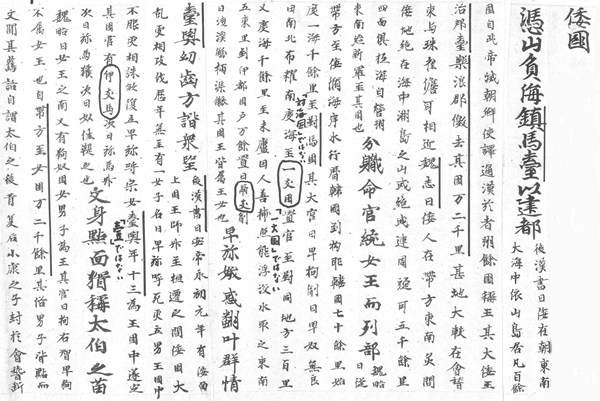 倭國
憑山負海鎮馬臺以建都
後漢書曰倭在朝東南
大海中依山島居凡百餘
國自武帝滅朝鮮使譯通漢於者卅餘國稱王其大倭王
治邦臺樂浪郡儌去其國万二千里甚地大較在會稽
東与珠崖儋耳相近魏志曰倭人在帶方東南炙問
倭地絶在海中洲島之山或絶或連周旋可五千餘里
四面俱極海自營州
東南經新羅至其國也
分職命官統女王而列部
魏略曰従
帶方至倭循海岸水行暦韓國到拘耶韓國七十餘里始
度一海千餘里至對馬國其大官曰卑狗副曰卑奴無良
田南北布糴南度海至一支國置官至對同地方三百里
「対海国」ではない
「一大国」ではない
又度海千餘里至末盧國人善捕魚能浮没水取之東南
五東里到伊都國戸万餘置曰爾支副
曰洩溪觚柄渠觚其國王皆属王女也
卑弥娥惑翻叶群情
臺與幼齒方諧衆望
後漢書曰安帝永初元年有倭面
上國王師升至桓遷之間倭國大
乱更相攻伐歴年無主有一女子名曰卑弥呼死更立男王國中
不服更相誅殺復立卑弥呼宗女臺與年十三為王國中遂定
「壹」ではない
其國官有伊支馬次曰弥馬升
次曰弥馬獲次曰奴佳鞮之也
文身點面猶稱太伯之苗
魏略曰女王之南又有狗奴國女男子為王其官曰拘右智卑狗
不属女王也自帶方至女國万二千餘里其俗男子皆點而
文聞其舊語自謂太伯之後昔夏后小康之子封於會稽断